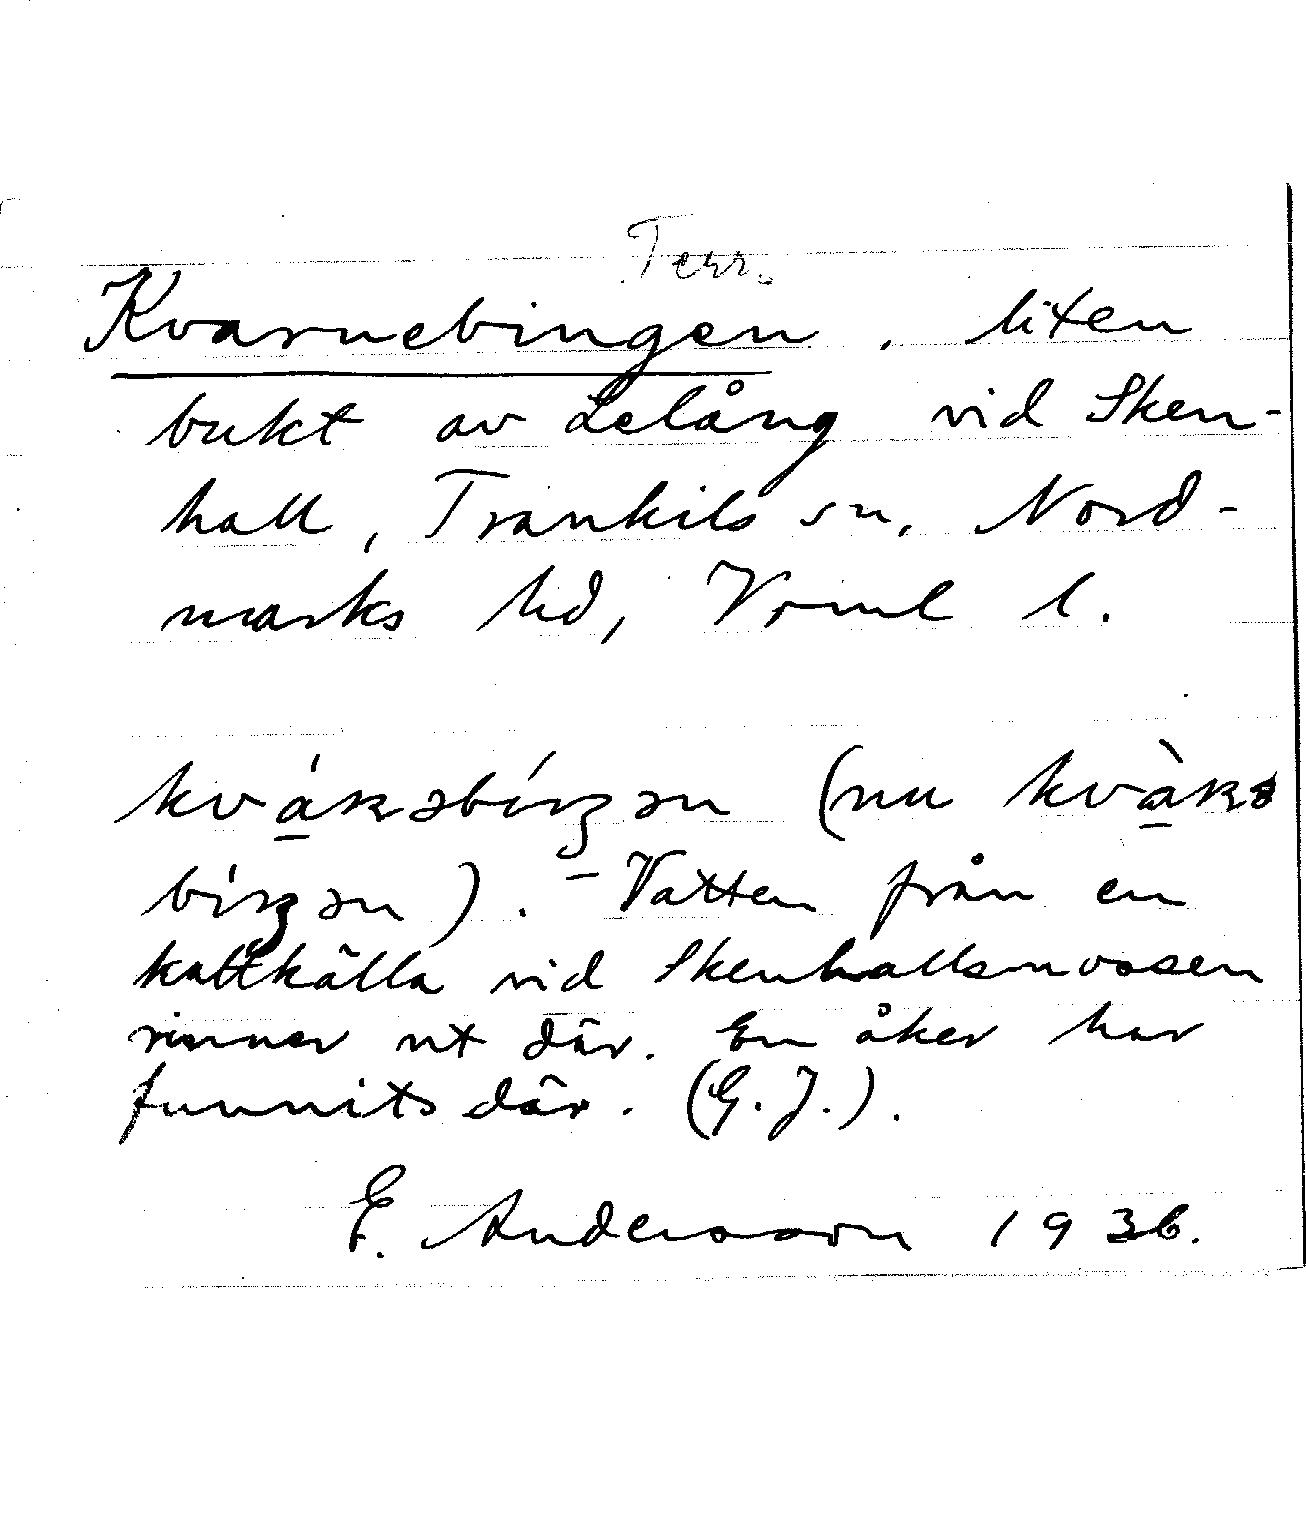 Terr.
Kvarnebingen, liten
bukt av Lelång vid Sken-
hall, Trankils sn, Nord-
marks hd, Vrml l.
(nu
). – Vatten från en
kattkälla vid Skenhallsmossen
rinner ut där. En åker har
funnits där. (G.J.).
E. Andersson 1936.